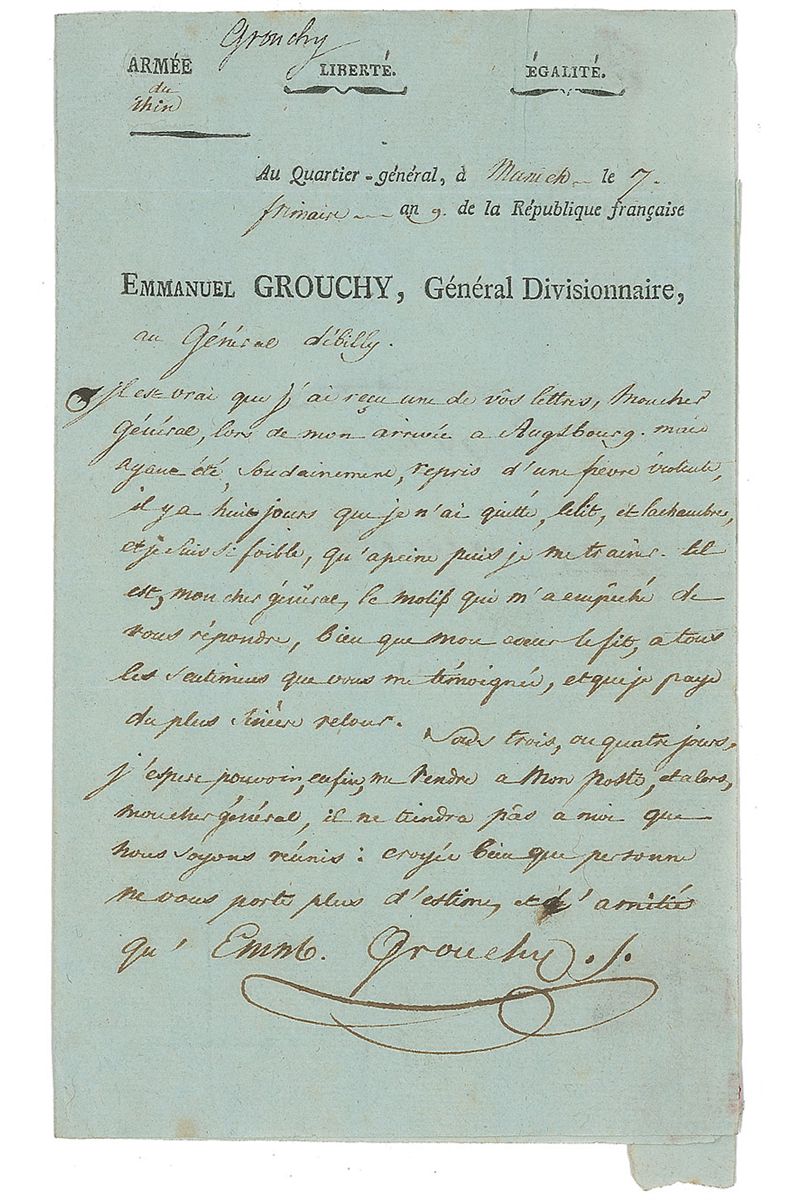 Grouchy
ARMÉE
du
rhin
LIBERTÉ.
ÉGALITÉ.
Au Quartier-général, à Munich le 7.
frimaire an 9. de la République française
EMMANUEL GROUCHY, Général Divisionnaire,
au Général débilly.
il est vrai que j'ai reçu une de vos lettres, mon cher
général, lors de mon arrivée a Augsbourg. mais
ayant été, soudainement, repris d'une fievre violente,
il y a huit jours que je n'ai quitté, le lit, et la chambre,
et je suis si foible, qu'apeine puis je me trainer. tel
est, mon cher général, le motif qui m'a empêché de
vous répondre, bien que mon cœur le fit, a tous
les sentimens que vous me témoignée, et que je paye
du plus sincère retour.
Sous trois, ou quatre jours,
j'espere pouvoir, enfin, me rendre a mon poste, et alors,
mon cher général, il ne tiendra pas a moi que
nous soyons réunis: croyée bien que personne
ne vous porte plus d'estime, et d'amitié
qu' Emm. Grouchy./.